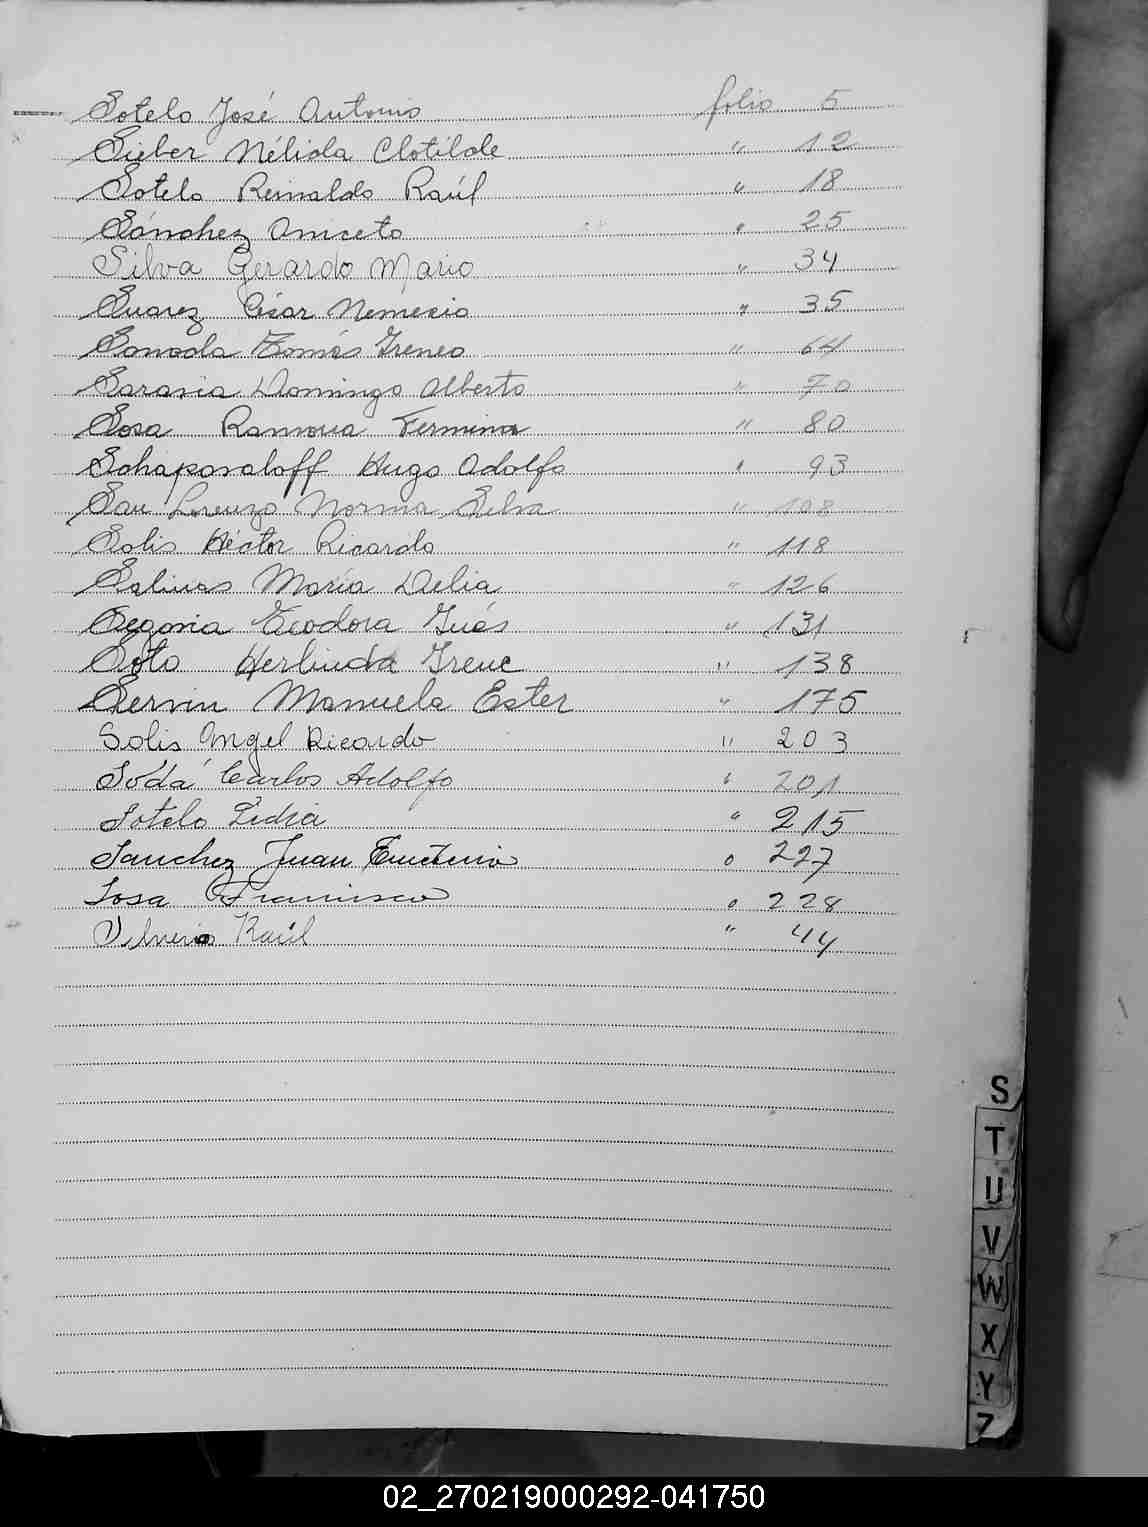 Sotelo José Antonio folio 5
Sieber Nélida Clotilde " 12
Sotelo Reinaldo Raúl " 18
Sánchez Aniceto " 25
Silva Gerardo Mario " 34
Suarez César Nemesio " 35
Tomás Ireneo " 64
Sarasia Domingo Alberto " 70
Sosa Ramona Fermina " 80
Schaposaloff Hugo Adolfo " 93
San Lorenzo Norma Selva " 108
Solis Héctor Ricardo " 118
Salinas María Delia " 126
Segovia Teodora Inés " 131
Soto Herlinda Irene " 138
Servin Manuela Ester " 175
Solis Angel Ricardo " 203
Sodá Carlos Adolfo " 201
Sotelo Lidia " 215
Sanchez Juan Emeterio " 227
Sosa Francisco " 228
Raúl " 44
S
T
U
V
W
X
Y
Z
02_270219000292-041750